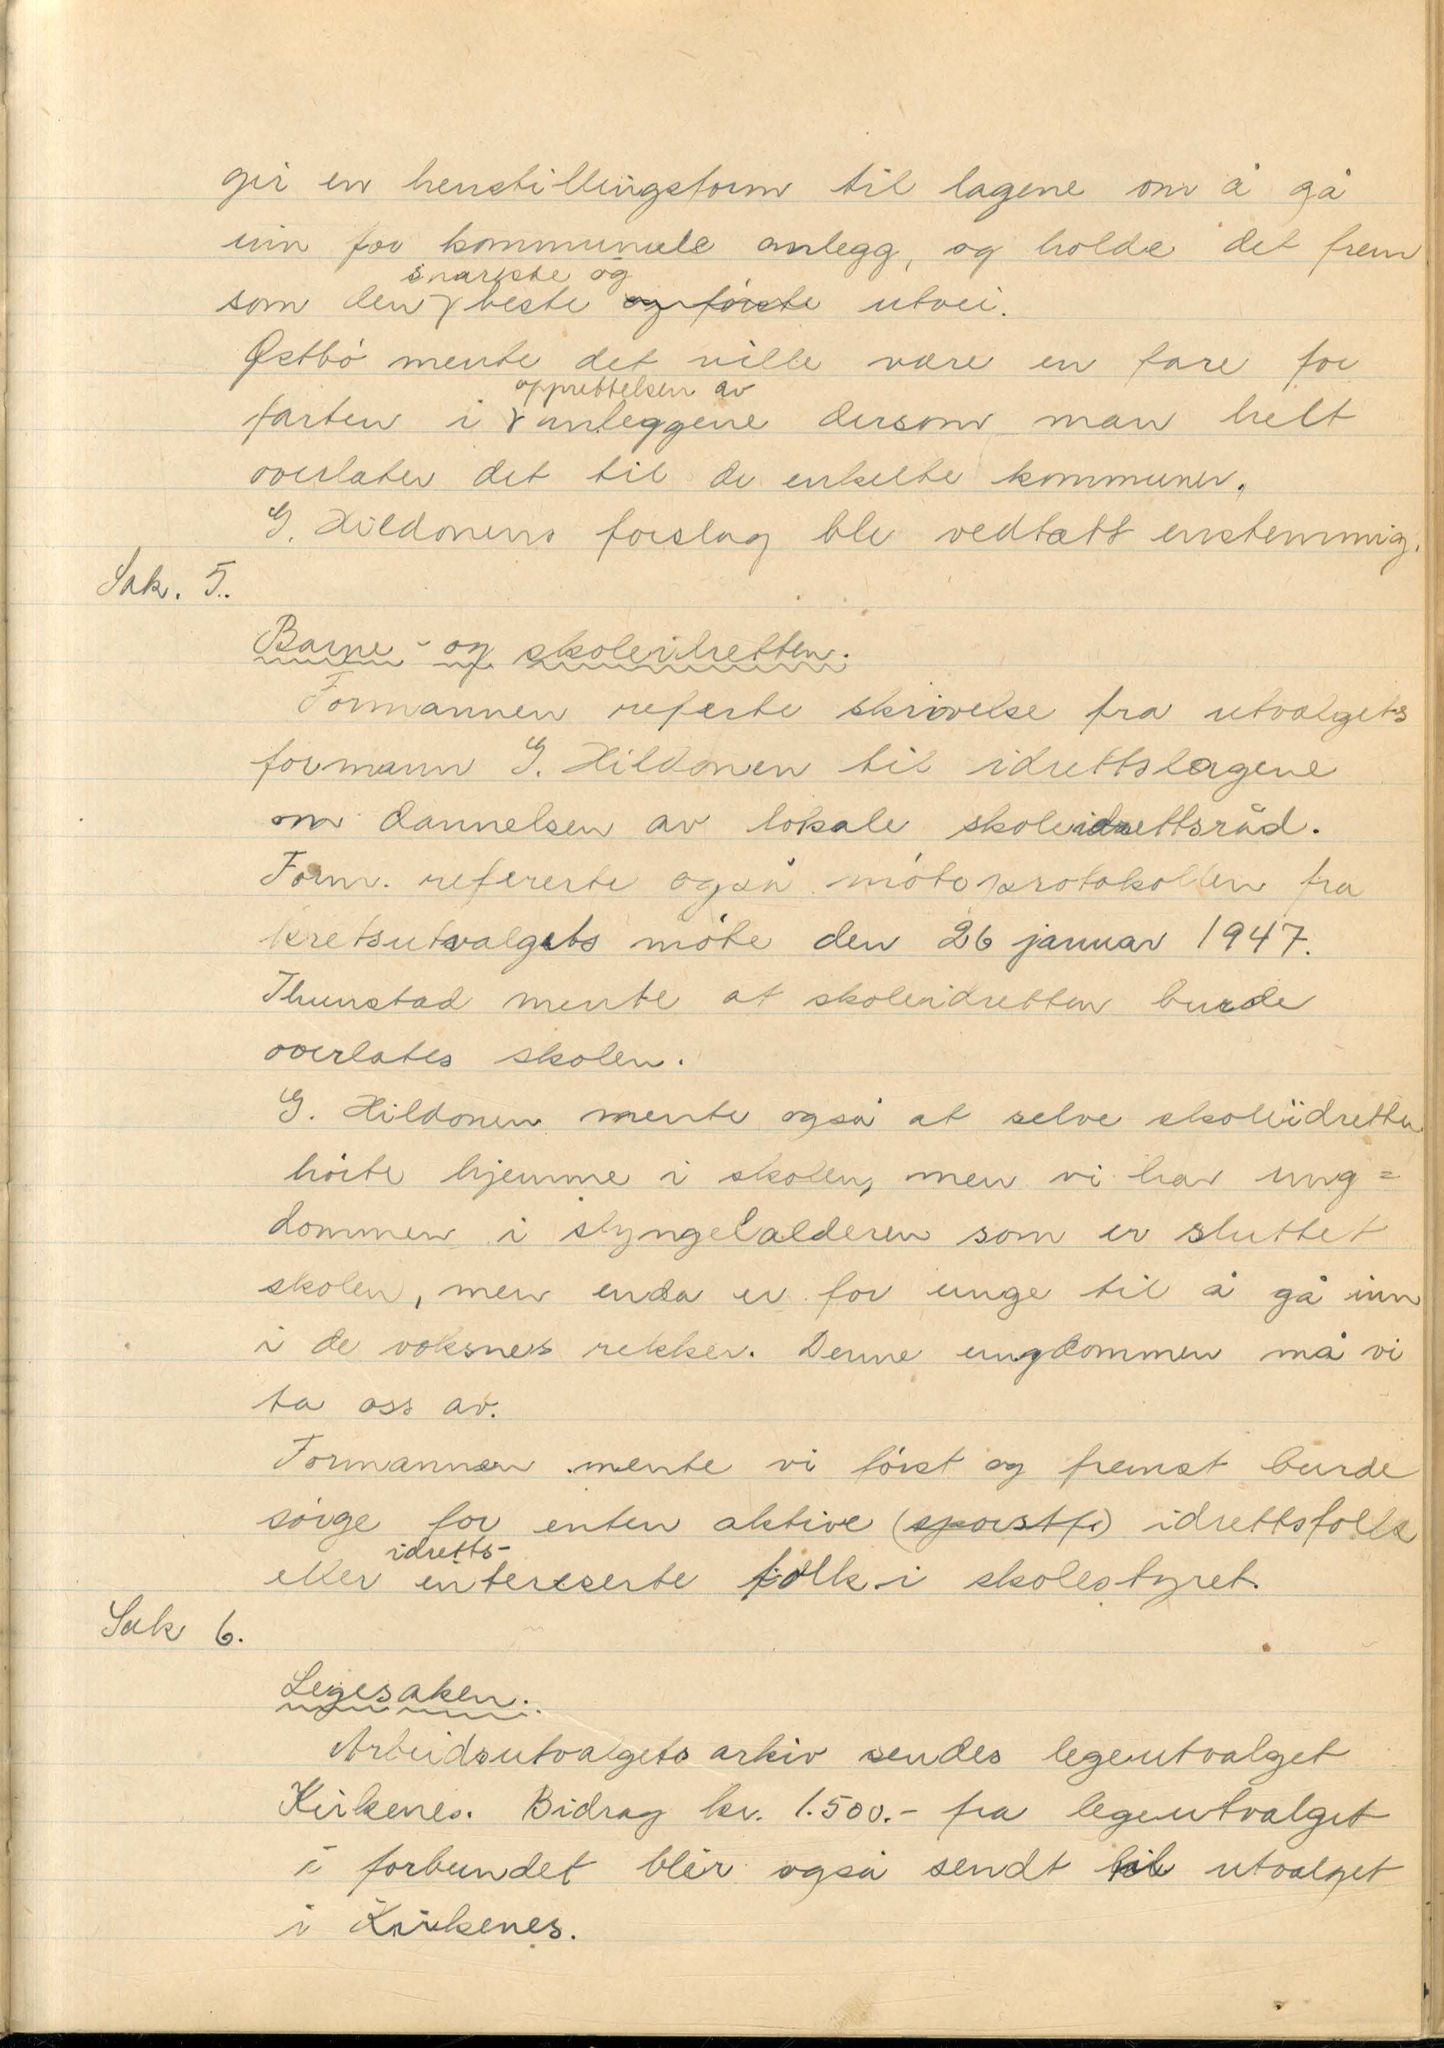 gir en henstillingsform til lagene om å gå
inn for kommunale anlegg, og holde det frem
snareste og
som den beste og förste utvei.
Østbö mente det ville være en fare for
opprettelsen av
farten i anleggene dersom man helt
overlater det til de enkelte kommuner.
G. Hildonens forslag ble vedtatt enstemmig.
Sak. 5.
Barne- og skoleidretten.
Formannen referte skrivelse fra utvalgets
formann G. Hildonen til idrettslagene
om dannelsen av lokale skoleidrettsråd.
Form. refererte også möteprotokollen fra
kretsutvalgets möte den 26 januar 1947.
Thunstad mente at skoleidretten burde
overlates skolen.
G. Hildonen mente også at selve skoleidretten
hörte hjemme i skolen, men vi har ung=
dommen i slyngelalderen som er sluttet
skolen, men enda er for unge til å gå inn
i de voksnes rekker. Denne ungdommen må vi
ta oss av.
Formannen mente vi först og fremst burde
sörge for enten aktive (sporstf.) idrettsfolk
idretts-
eller intereserte folk i skolestyret.
Sak 6.
Legesaken.
Arbeidsutvalgets arkiv sendes legeutvalget
Kirkenes. Bidrag kr. 1.500.- fra legeutvalget
i forbundet blir også sendt til utvalget
i Kirkenes.